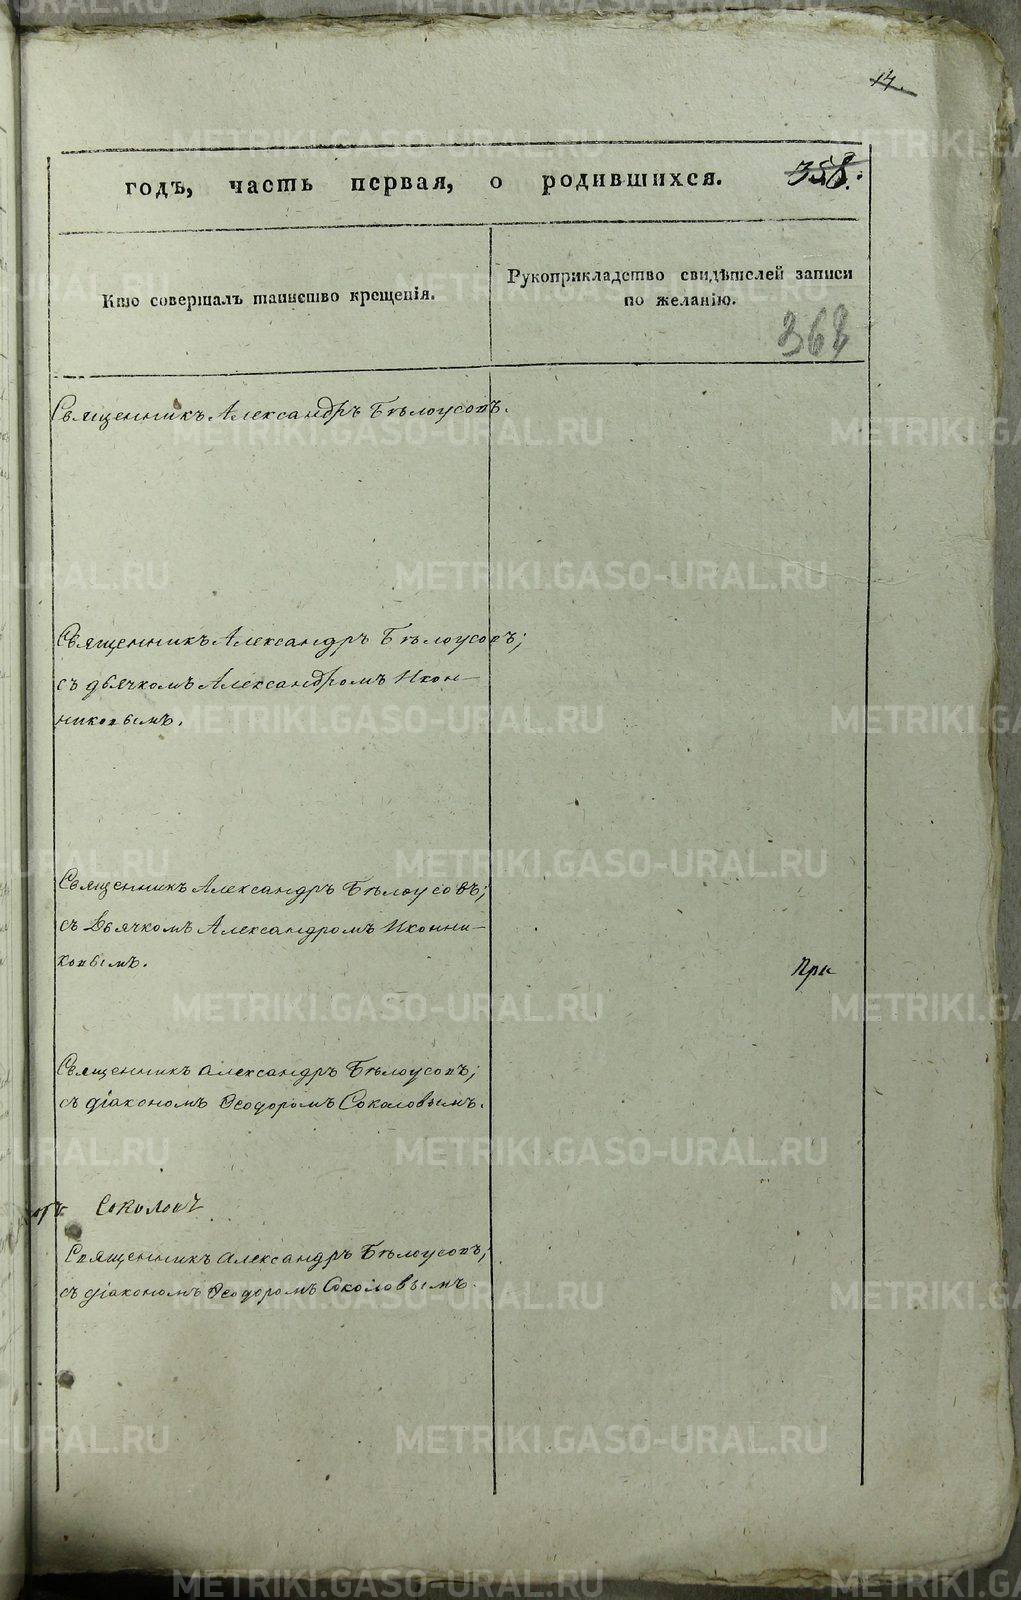 14.
годъ, часть первая, о родившихся. 358.
Кто совершалъ таинство крещенія.
Рукоприкладство свидѣтелей записи
по желанію.
368
Священникъ Александръ Бѣлоусовъ.
Священникъ Александръ Бѣлоусовъ;
съ дьячкомъ Александромъ Икон-
никовымъ.
Священникъ Александръ Бѣлоусовъ;
съ Дьячкомъ Александромъ Иконни-
ковымъ.
При
Священникъ Александръ Бѣлоусовъ;
съ діакономъ Ѳеодоромъ Соколовымъ.
Соколовъ
Священникъ Александръ Бѣлоусовъ;
съ діакономъ Ѳеодоромъ Соколовымъ.
METRIKI.GASO-URAL.RU